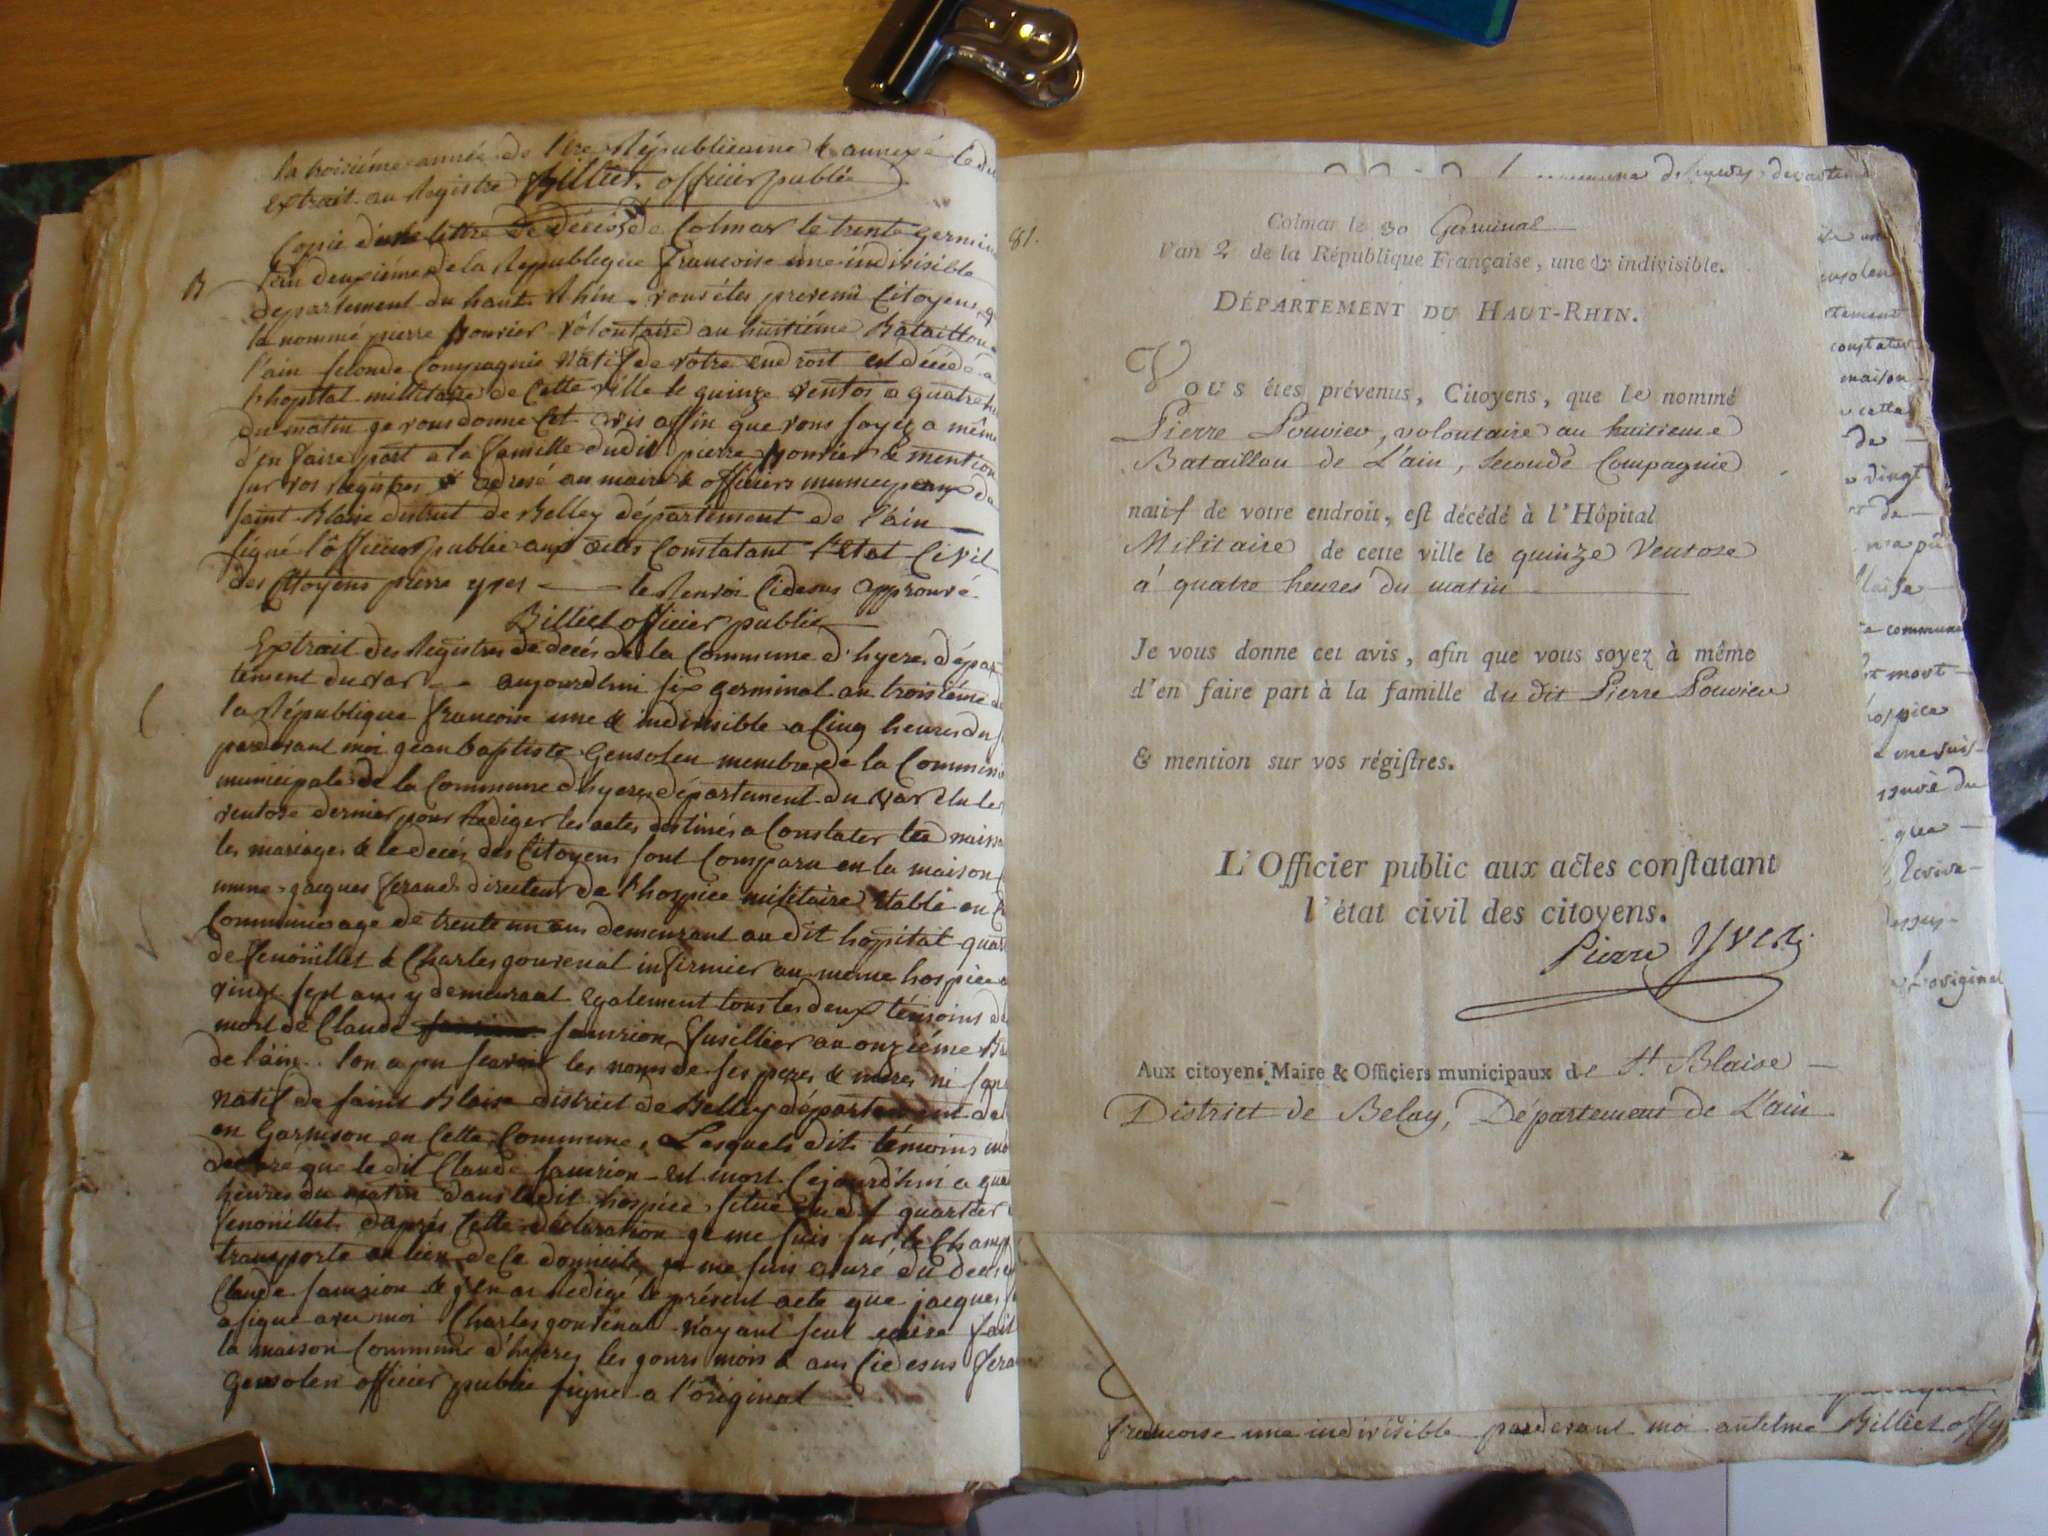 la troisiéme année de l'ère Républicaine & annexé le du
extrait au Registre Billiet officier publie
Copie d'une lettre de décés de Colmar le trente germin
l'an deuxiéme de la Republeque francoise une indivisible
B
departement du haut Rhin. vous étes prevenu Citoyens, q
le nommé pierre pouvier vôlontaire au huitiéme Bataillon
l'ain seconde Compagnie natif de vôtre endroit est décédé a
l'hopital millitaire de Cette ville le quinze ventos a quatre he
du matin je vous donne Cet avis affin que vous soyez a même
d'en faire part a la famille dudit pierre pouvier & mention
sur vos registres adressé au maire & officiers municipaux de
saint Blaise district de Belley département de l'ain
signé l'ôfficier publie aux actes Constatant l'etat Civil
des Citoyens pierre yves le Renvoi Cidesus approuvé
Billiet officier publie
Extrait des Registres de decés de la Commune d'hyeres dépar
tement du var aujourdhui six germinal an troisiéme de
la République francoise une & indivisible a cinq heures du s
pardevant moi jean baptiste Gensolen membre de la Commissi
municipale de la Commune d'hyeres département du var élu le
ventose dernier pour Rediger les actes destinés a Constater les naissa
les mariages & le deces des Citoyens sont Comparu en la maison
mune jacques feraud directeur de l'hospice militaire etablé en C
Commune age de trente un ans demeurant au dit hopital quar
de fenoüillet & Charles gouvenal infirmier au meme hospice a
vingt sept ans y demeurant egalement tous les deux témoins de
mort de Claude samrion fusillier au onziéme Ba
de l'ain. lon a pu scavoir les noms de ses peres & meres ni son
natif de saint Blaise district de Belley départem ent de
en Garnison en Cette Commune, Lesquels dits témoins mo
declaré que le dit Claude samrion est mort Cejourd'hui a qua
heures du matin dans le dit hospice situé au dt quartier
fenoüillet daprès Cette déclaration je me suis sur le Champ
transporté au lieu de Ce domicile je me suis assuré du deces
Claude samrion & j'en ai Redigé le présent acte que jacques f
a signé avec moi Charles gouvenal n'ayant seut ecrire fait
la maison Commune d'hyeres les jours mois & ans Cidesus fera
Gensolen officier publie signé a l'original
81.
Colmar le 30 Germinal
l'an 2 de la République Française, une & indivisible.
DÉPARTEMENT DU HAUT-RHIN.
VOUS êtes prévenus, Citoyens, que le nommé
Pierre Pouvier, volontaire au huitieme
Bataillon de L'ain, Seconde Compagnie
natif de votre endroit, est décédé à l'Hôpital
Militaire de cette ville le quinze Ventose
à quatre heures du matin
Je vous donne cet avis, afin que vous soyez à même
d'en faire part à la famille du dit Pierre Pouvier
& mention sur vos régistres.
L'Officier public aux actes constatant
l'état civil des citoyens.
Pierre Yves
Aux citoyens Maire & Officiers municipaux de St. Blaise
District de Belay, Département de L'ain
constater
maison
cette
de
vingt
de
commune
mort
me suis
que
Ecrire
L'original
francoise une indivisible pardevant moi antelme Billiet offi